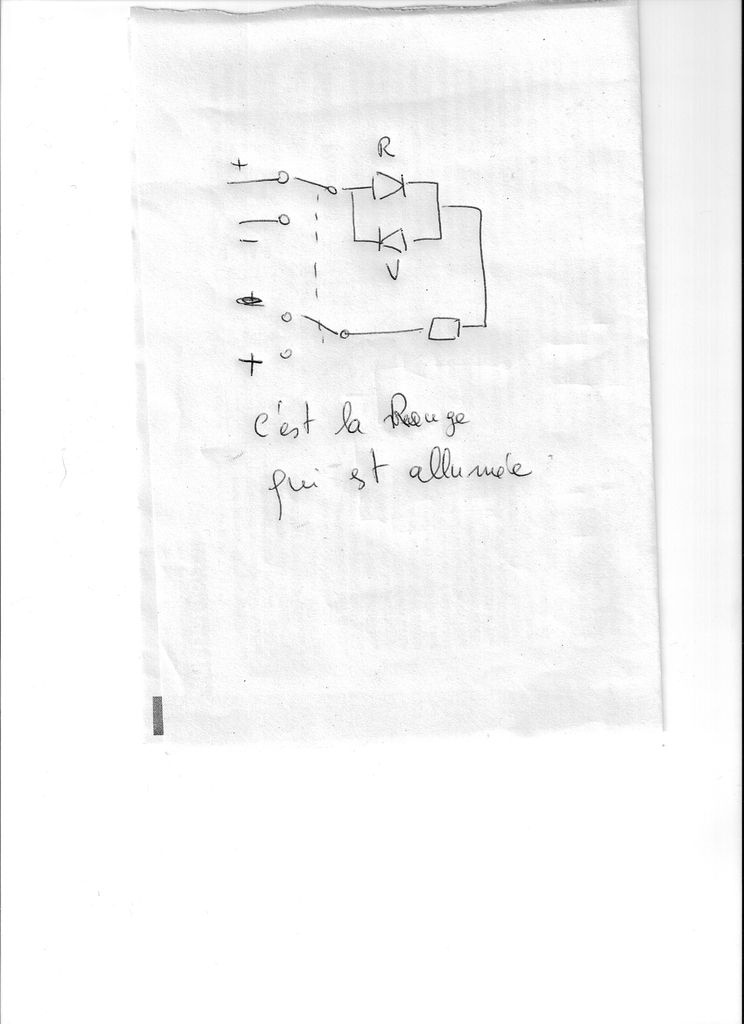 R
+
-
V
+
c'est la Rouge
qui est allumée